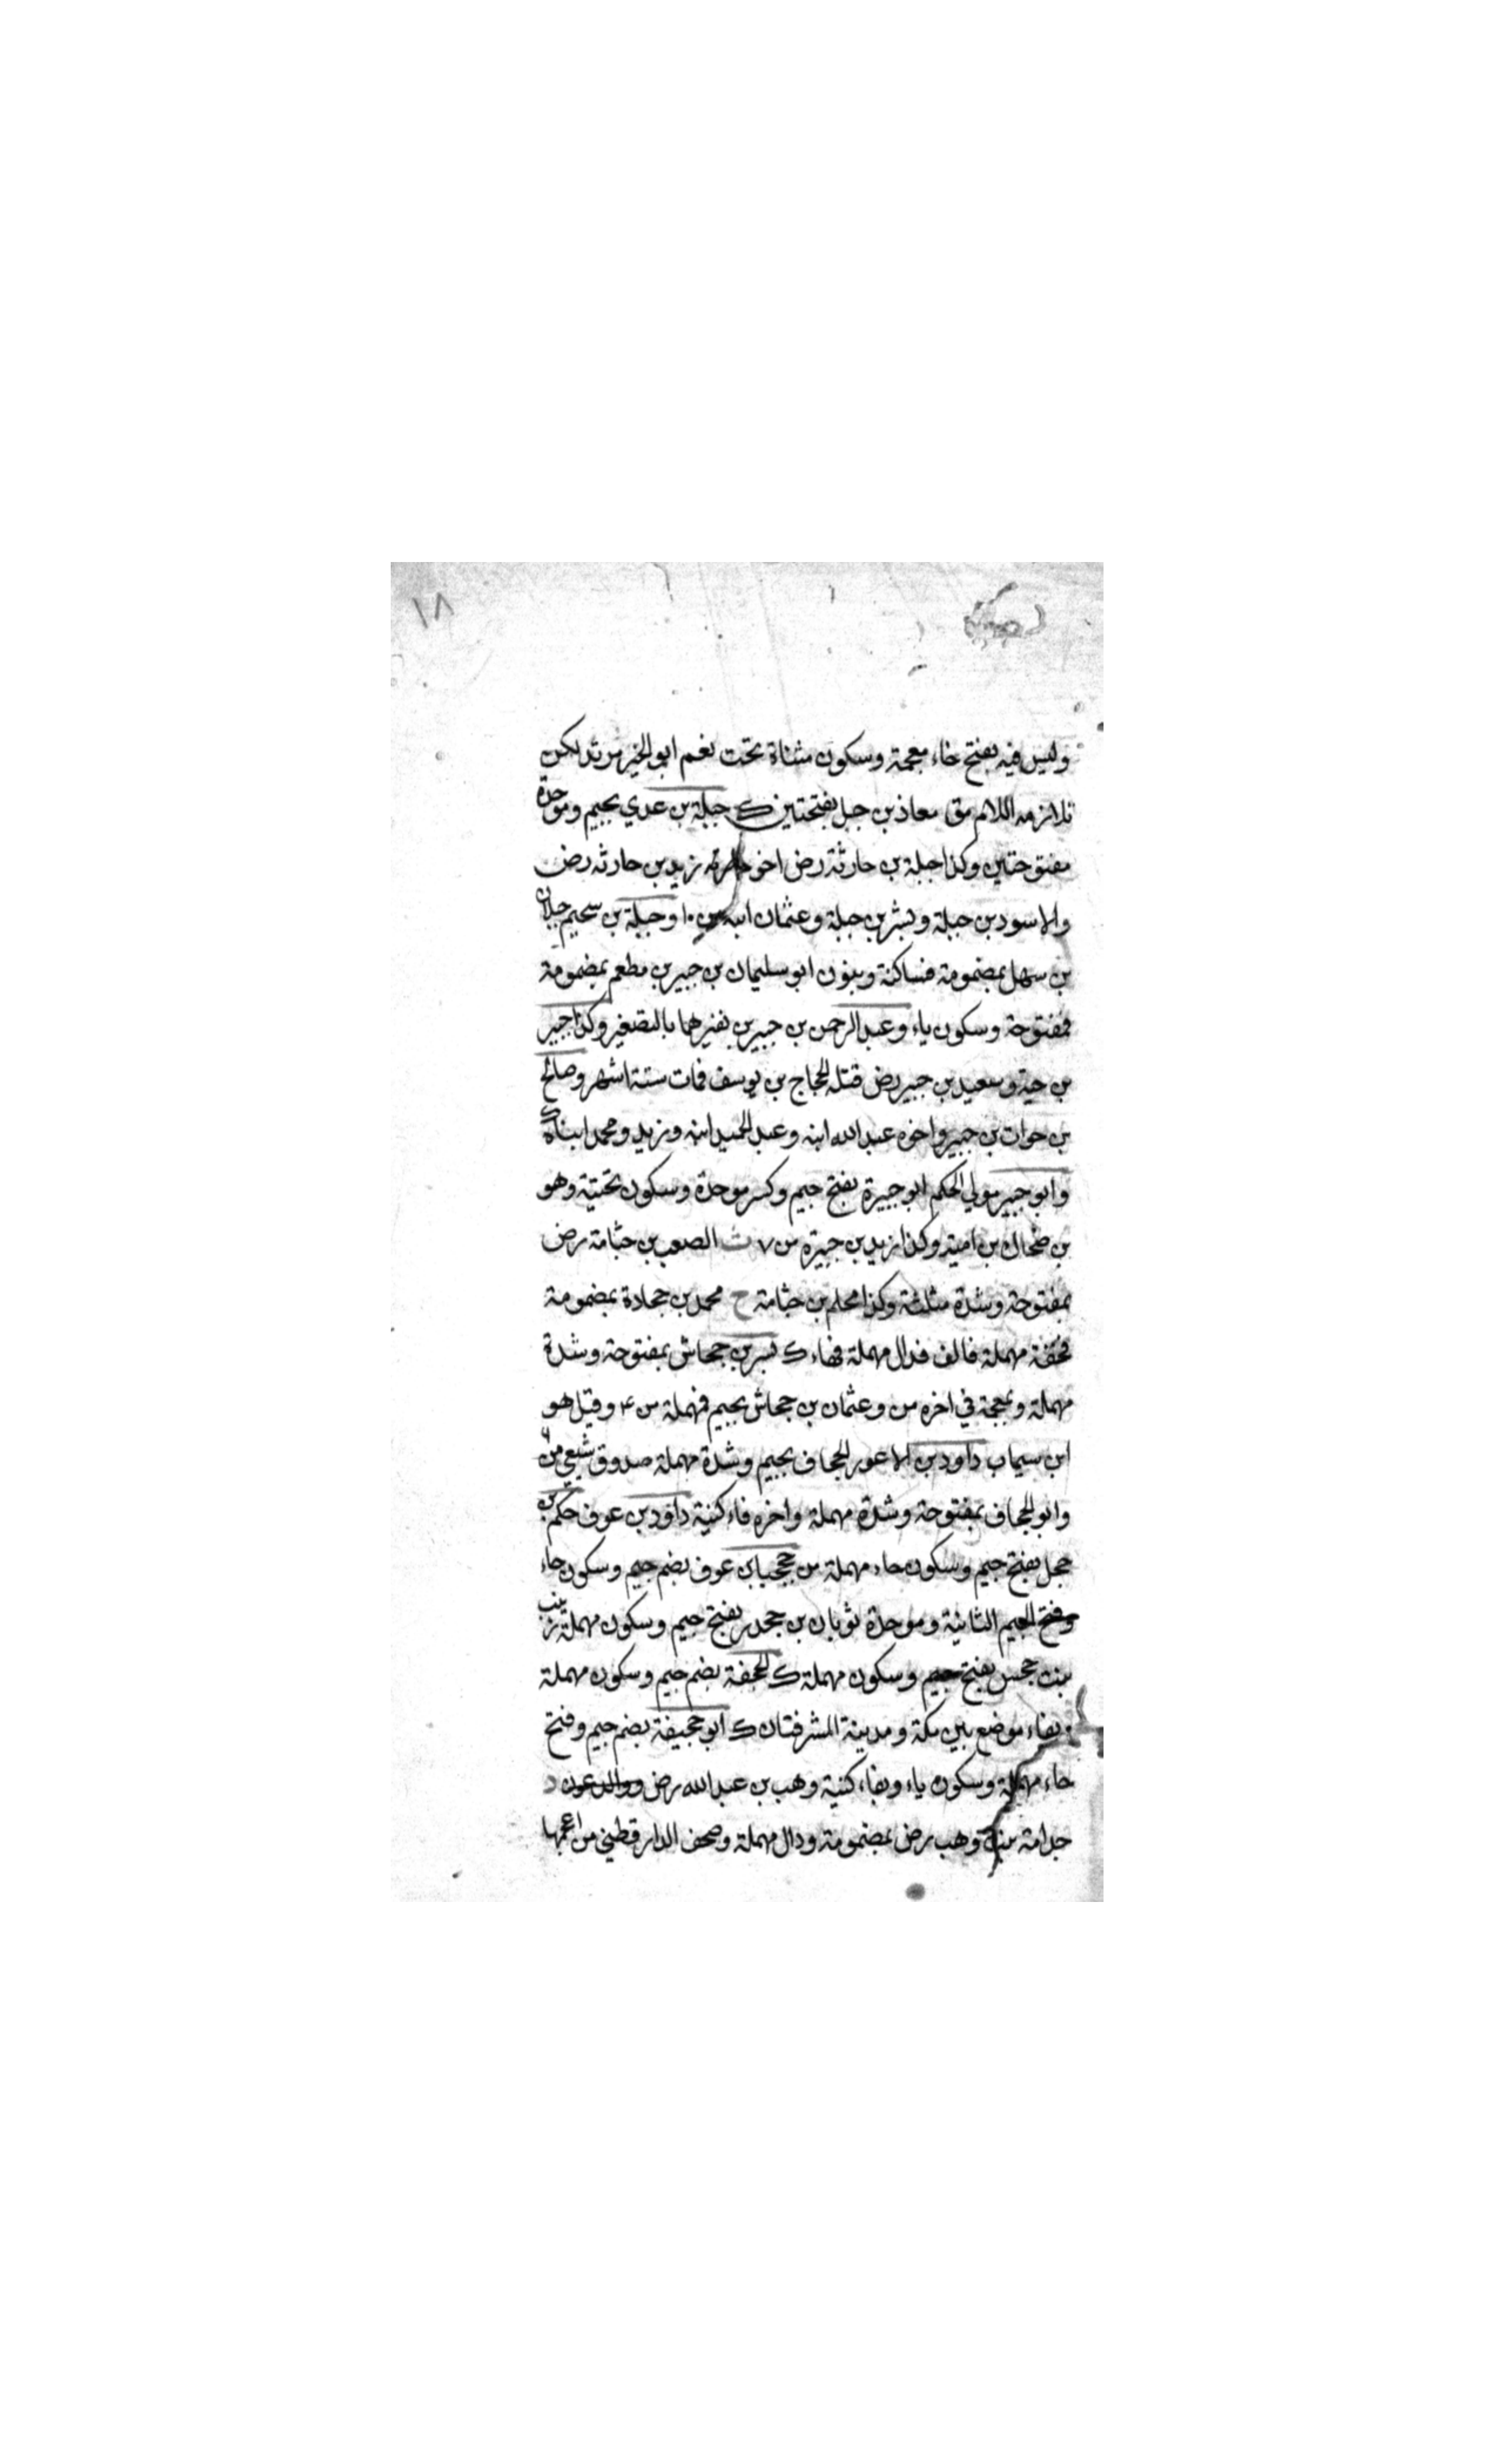 ١٨
وليس فيه بفتح خاء معجمة وسكون مثناة تحت نعم ابو الخير مرثد لكن
تلازمه اللام مق معاذ بن جبل بفتحتين ك جبلة بن عدي بجيم وموحدة
مفتوحتين وكذا جبلة بن حارثة رض اخو زيد بن حارثه رض
والاسود بن جبلة وبشر بن جبلة وعثمان ابنه من ١٠ وجبلة بن سحيم جبلان
بن سهل بمضمومة فساكنة وبنون ابو سليمان بن جبير بن مطعم بمضمومة
فمفتوحة وسكون ياء وعبد الرحمن بن جبير بن نفير هما بالتصغير وكذا جبير
بن حية وسعيد بن جبير رض قتله الحجاج بن يوسف فمات ستة اشهر وصالح
بن خوات بن جبير واخوه عبد الله ابنه وعبد الحميد ابنه وزيد ومحمد ابناه ك
وابو جبير مولي الحكم ابو جبيرة بفتح جيم وكسر موحدة وسكون تحتية وهو
بن ضحاك بن امية وكذا زيد بن جبيرة من ٧ ث الصعب بن جثامة رض
بمفتوحة وشدة مثلثة وكذا محلم بن جثامة ح محمد بن جحادة بمضمومة
فخفة مهملة فالف فدال مهملة فهاء ك بسر بن جحاش بمفتوحة وشدة
مهملة وبمعجمة في اخره من وعثمان بن جحاش بجيم فمهملة من ٤ وقيل هو
ابن سيماب داود بن الاعور الجحاف بجيم وشدة مهملة صدوق شيعي من ٦
وابو الجحاف بمفتوحة وشدة مهملة واخره فاء كنية داود بن عوف حكم بن
جحل بفتح جيم وسكون حاء مهملة من جحجبا بن عوف بضم جيم وسكون حاء
وفتح الجيم الثانية وموحدة ثوبان بن جحدر بفتح جيم وسكون مهملة زينب
بنت جحش بفتح جيم وسكون مهملة ك الجحفة بضم جيم وسكون مهملة
وبفاء موضع بين مكة ومدينة المشرفتان ك ابو جحيفة بضم جيم وفتح
حاء مهملة وسكون ياء وبفاء كنية وهب بن عبد الله رض ووالد عون د
جدامة بنت وهب رض بمضمومة ودال مهملة وصحف الدارقطني من اعجمها